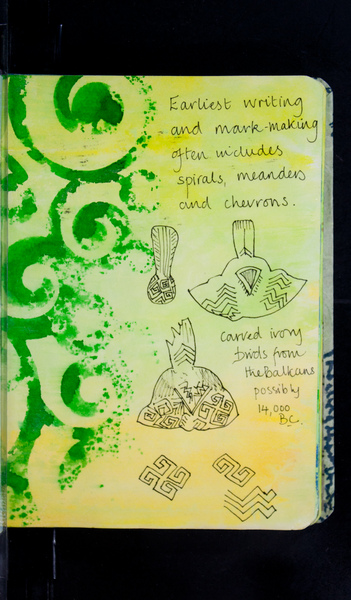 Earliest writing
and mark-making
often includes
spirals, meanders
and chevrons.
Carved ivory
birds from
the Balkans
possibly
14,000
BC.